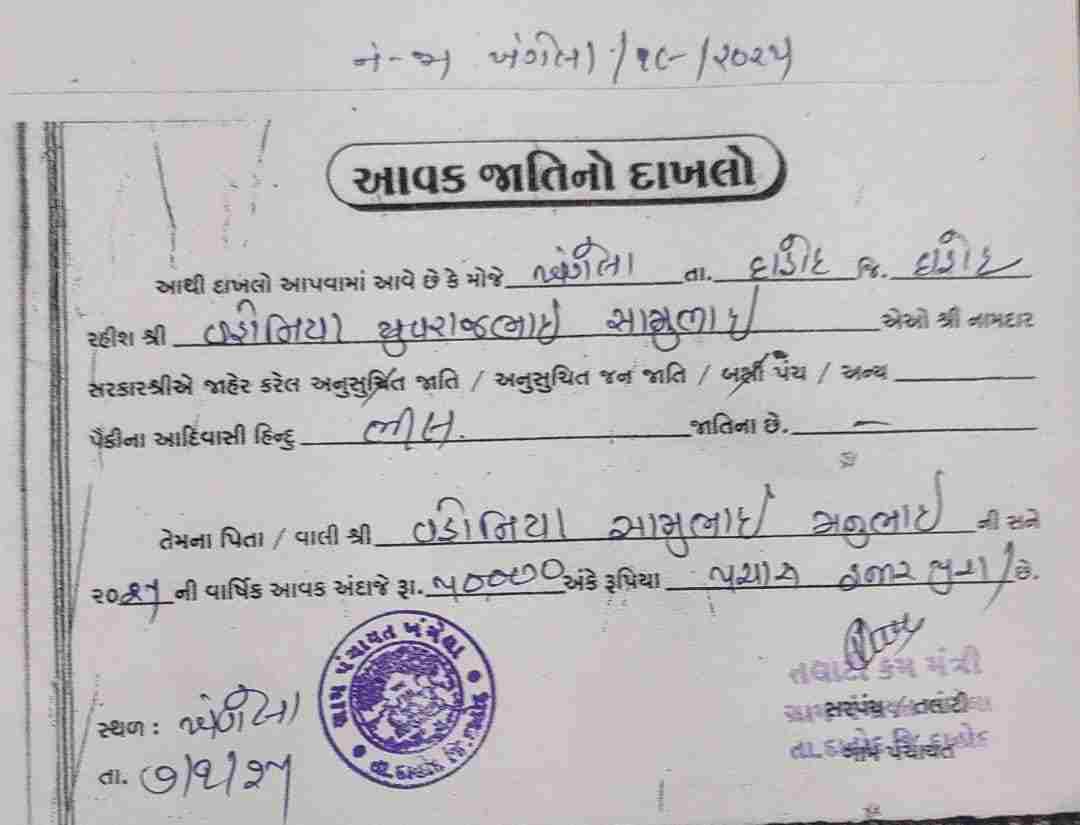 ને-જા ખંગેલા/૧૯/૨૦૨૫
આવક જાતિનો દાખલો
આથી દાખલો આપવામાં આવે છે કે મોજે ખંગેલા તા. દાહોદ જિ. દાહોદ
રહીશ શ્રી યુવરાજભાઈ સામુભાઈ એઓ શ્રી નામદાર
સરકારશ્રીએ જાહેર કરેલ અનુસુચિત જાતિ / અનુસુચિત જન જાતિ / બક્ષી પંચ / અન્ય
પૈકીના આદિવાસી હિન્દુ ભીલ. જાતિના છે. —
તેમના પિતા / વાલી શ્રી સામુભાઈ મનુભાઈ ની સને
૨૦૨૫ ની વાર્ષિક આવક અંદાજે રૂા. ૫૦૦૦૦ અંકે રૂપિયા પચાસ હજાર પુરા/ છે.
ગ્રામ પંચાયત ખંગેલા
તા. દાહોદ જિ. દાહોદ
તલાટી કમ મંત્રી
સરપંચ / તલાટી
તા. દાહોદ જિ. દાહોદ
ગ્રામ પંચાયત
સ્થળ : ખંગેલા
તા. ૭/૧/૨૫